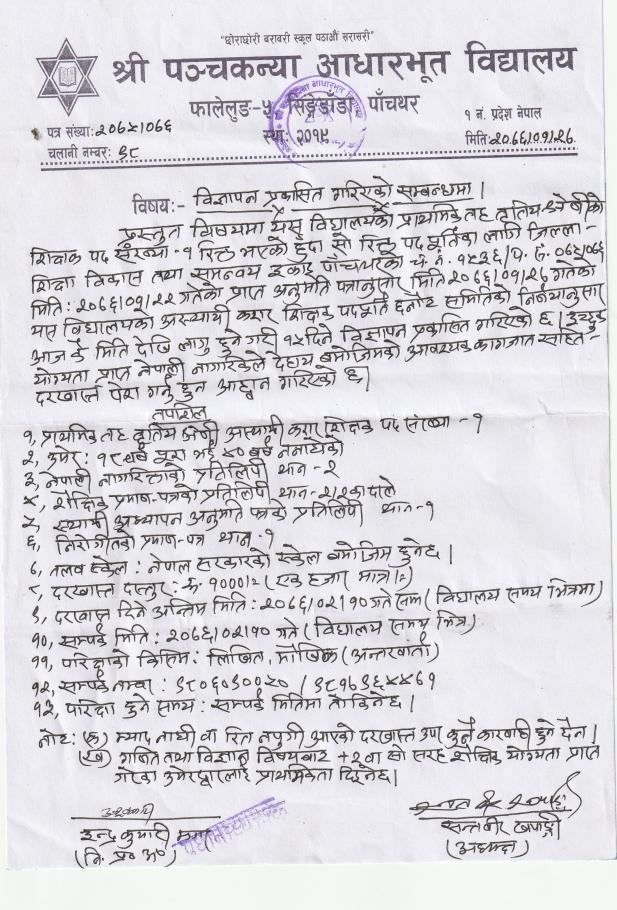 "छोराछोरी बराबरी स्कूल पठाऔं सरासरी"
श्री पञ्चकन्या आधारभूत विद्यालय
फालेलुङ-५ सिङ्देडाँडा पाँचथर
पत्र संख्याः २०७५।०७६
स्थाः २०१९
१ नं. प्रदेश नेपाल
चलानी नम्बरः ९८
मितिः २०७६।०१।२६
विषयः- विज्ञापन प्रकासित गरिएको सम्बन्धमा।
प्रस्तुत बिषयमा यस विद्यालयको प्राथमिक तह तृतिय श्रेणीको
शिक्षक पद संख्या - १ रिक्त भएको हुंदा सो रिक्त पद पूर्तिका लागि जिल्ला-
शिक्षा विकास तथा समन्वय इकाइ पाँचथरको च.नं. १५३६/प.सं. ०७५।०७६
मिति: २०७६।०१।२२ गतेको प्राप्त अनुमति पत्रानुसार मिति २०७६।०१।२६ गतेको
यस विद्यालयको अस्थायी करार शिक्षक पदपूर्ति छनौट समितिको निर्णयानुसार
आजकै मिति देखि लागु हुने गरी १५ दिने विज्ञापन प्रकासित गरिएको छ। इच्छुक
योग्यता प्राप्त नेपाली नागरिकले देहाय बमोजिमको आवश्यक कागजात सहित-
दरखास्त पेश गर्नु हुन आह्वान गरिएको छ।
तपशिल
१, प्राथमिक तह तृतिय श्रेणी अस्थायी करार शिक्षक पद संख्या - १
२, उमेर: १८ वर्ष पूरा भई ४० वर्ष ननाघेको
३, नेपाली नागरिक्ताको प्रतिलिपी थान - २
४, शैक्षिक प्रमाण-पत्रको प्रतिलिपी थान-२।२ का दरले
५, स्थायी अध्यापन अनुमति पत्रको प्रतिलिपी थान-१
६, निरोगीतको प्रमाण-पत्र थान-१
७, तलब स्केल: नेपाल सरकारको स्केल बमोजिम हुनेछ।
८, दरखास्त दस्तुर: रु. १०००।- (एक हजार मात्र।-)
९, दरखास्त दिने अन्तिम मिति: २०७६।०२।१० गते सम्म (विद्यालय समय भित्रमा)
१०, सम्पर्क मिति: २०७६।०२।१० गते (विद्यालय समय भित्र)
११, परिक्षाको किसिम: लिखित, मौखिक (अन्तरवार्ता)
१२, सम्पर्क नम्बर: ९८०६०३००५० / ९८१७९६५५७१
१३, परिक्षा हुने समय: सम्पर्क मितिमा तोकिनेछ।
नोट: (क) म्याद नाघी वा रित नपुगी आएको दरखास्त उपर कुनै कारवाही हुने छैन।
(ख) गणित तथा विज्ञान विषयबाट +२ वा सो सरह शैक्षिक योग्यता प्राप्त
गरेका उमेद्वारलाई प्राथमिकता दिइनेछ।
इन्द्र कुमारी
(नि. प्र० अ०)
(अध्यक्ष)